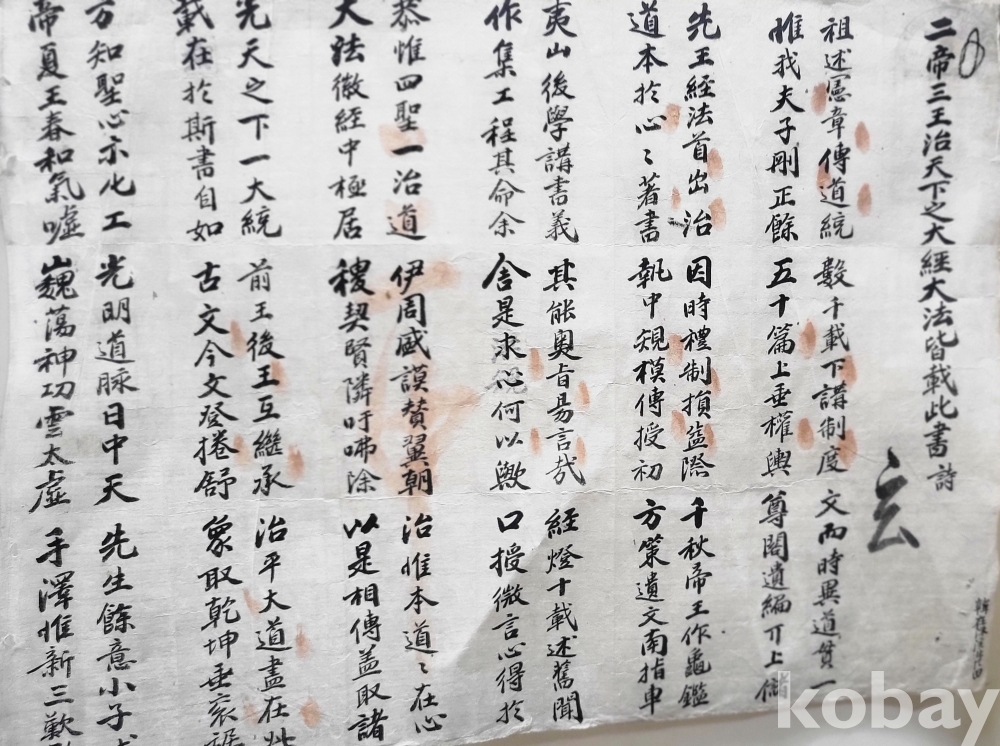 二帝三王治天下之大經大法皆載此書 詩
玄
祖述憲章傳道統 數千載下講制度 文而時異道貫一
惟我夫子剛正餘 五十篇上垂權輿 尊閣遺編丌上
先王經法首出治 因時禮制損益際 千秋帝王作龜鑑
道本於心〻著書 執中規模傳授初 方策遺文南指車
夷山後學講書義 其能奧旨昜言哉 經燈十載述舊聞
作集工程其命余 舍是求心何以歟 口授微言心得於
恭惟四聖一治道 伊周盛謨贊翼朝 治惟本道〻在心
大法徵經中極居 稷契賢隣吁咈除 以是相傳盖取諸
先天之下一大統 前王後王互繼承 治平大道盡在此
載在於斯書自如 古文今文登捲舒 象取乾坤垂衣裾
方知聖心示化工 光明道脉日中天 先生餘意小子
帝夏王春和氣噓 巍蕩神功雲太虛 手澤惟新三歎
kobay